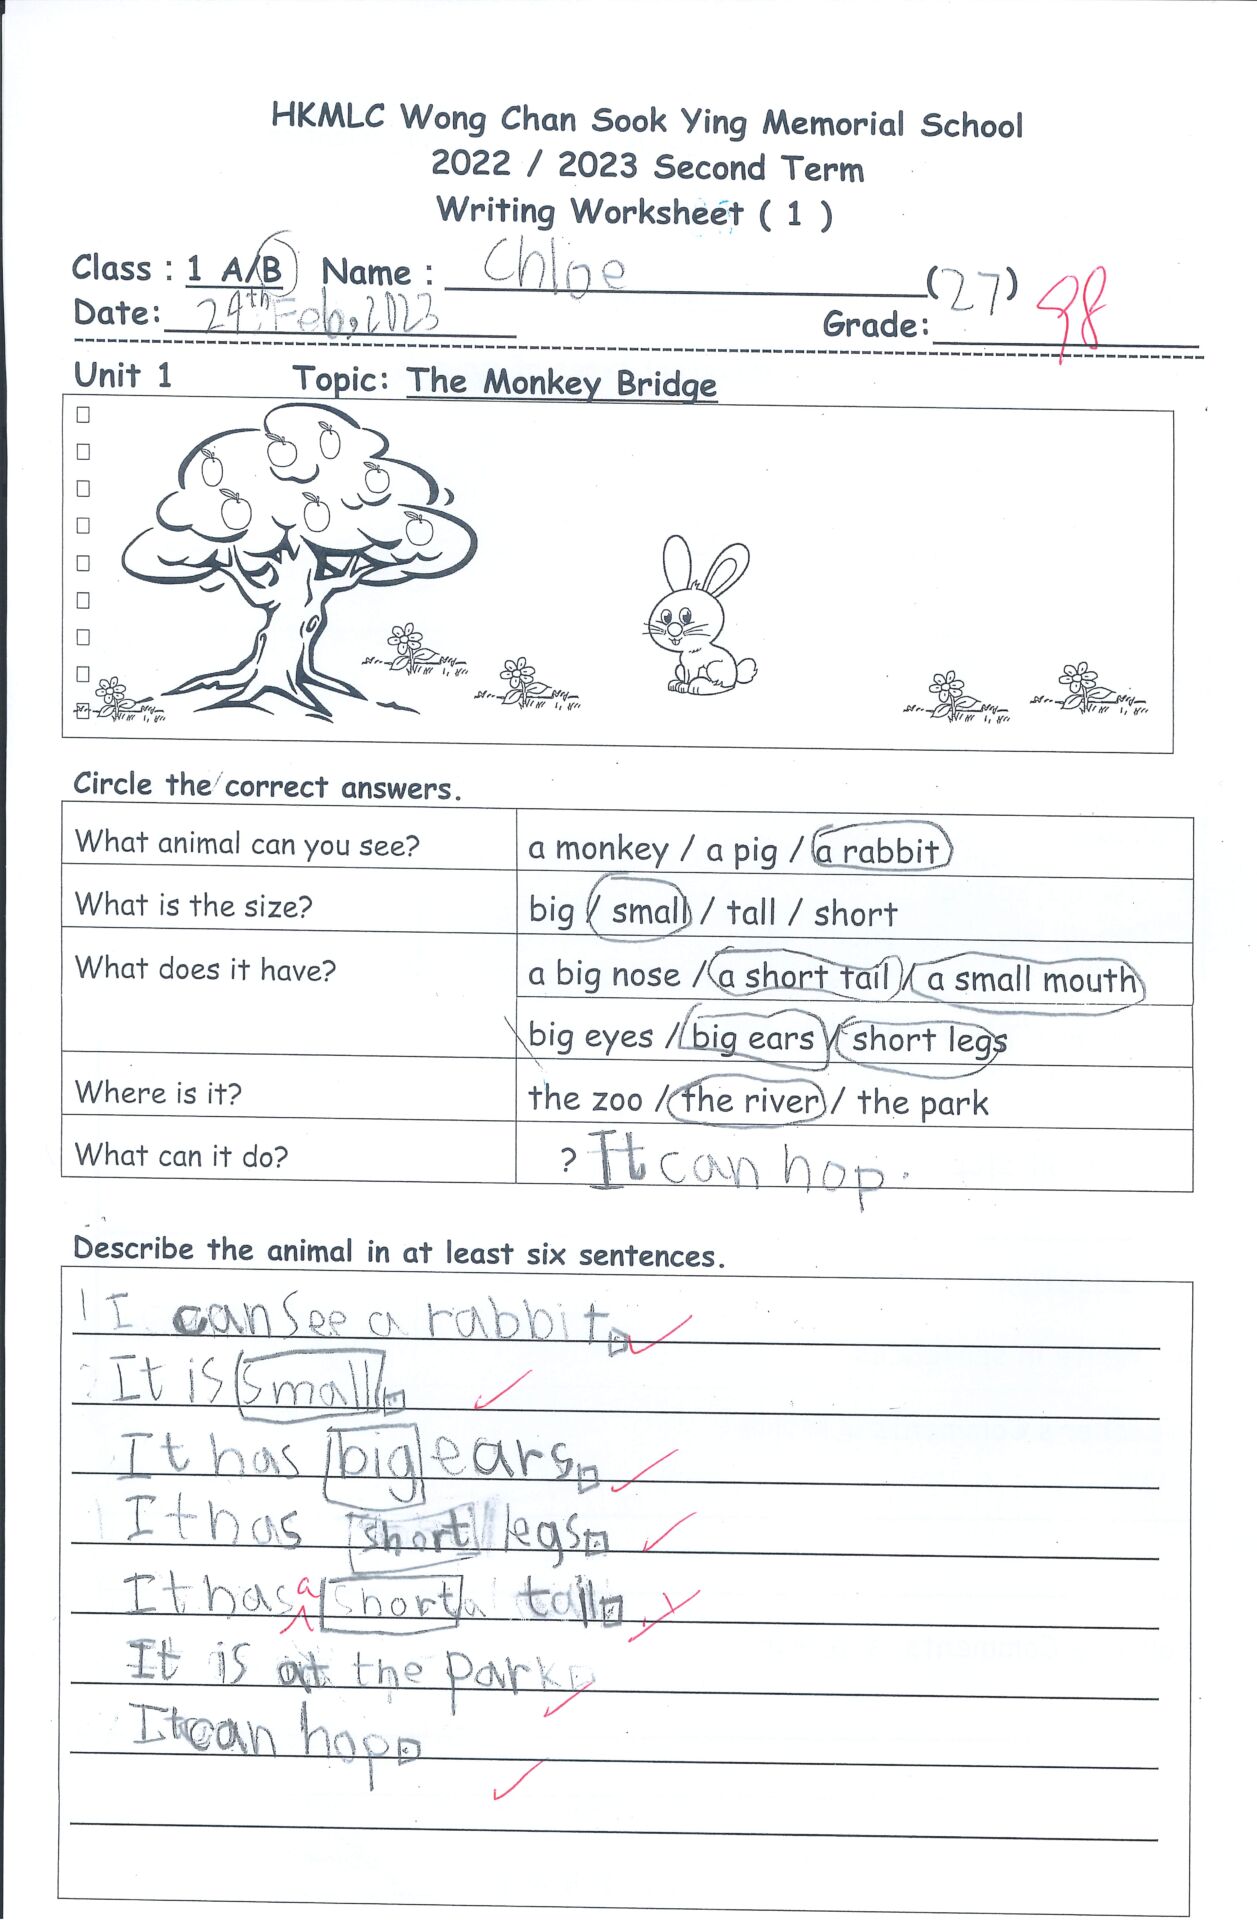 HKMLC Wong Chan Sook Ying Memorial School
2022 / 2023 Second Term
Writing Worksheet ( 1 )
Class : 1 A/B Name : Chloe (27)
Date: 24th Feb, 2023 Grade: 98
Unit 1 Topic: The Monkey Bridge
Circle the correct answers.
What animal can you see? a monkey / a pig / a rabbit
What is the size? big / small / tall / short
What does it have? a big nose / a short tail / a small mouth
big eyes / big ears / short legs
Where is it? the zoo / the river / the park
What can it do? ? It can hop.
Describe the animal in at least six sentences.
I can see a rabbit.
It is small.
It has big ears.
It has short legs.
It has a short tail.
It is at the park.
It can hop.